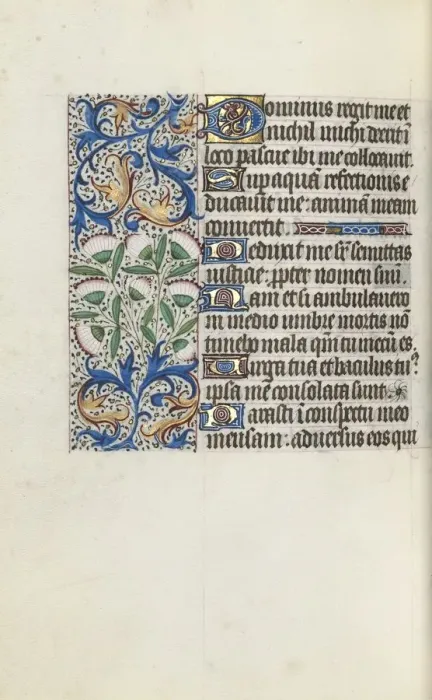 Dominus regit me et
nichil michi deerit i
loco pascue ibi me collocavit.
Sup aquam refectionis e
ducavit me: animam meam
convertit.
Deduxit me sr semitas
iusticie: ppter nomen suu.
Nam et si ambulavero
in medio umbre mortis no
timebo mala qm tu mecu es.
Virga tua et baculus tu?
ipsa me consolata sunt
Parasti i conspectu meo
mensam: adversus eos qui